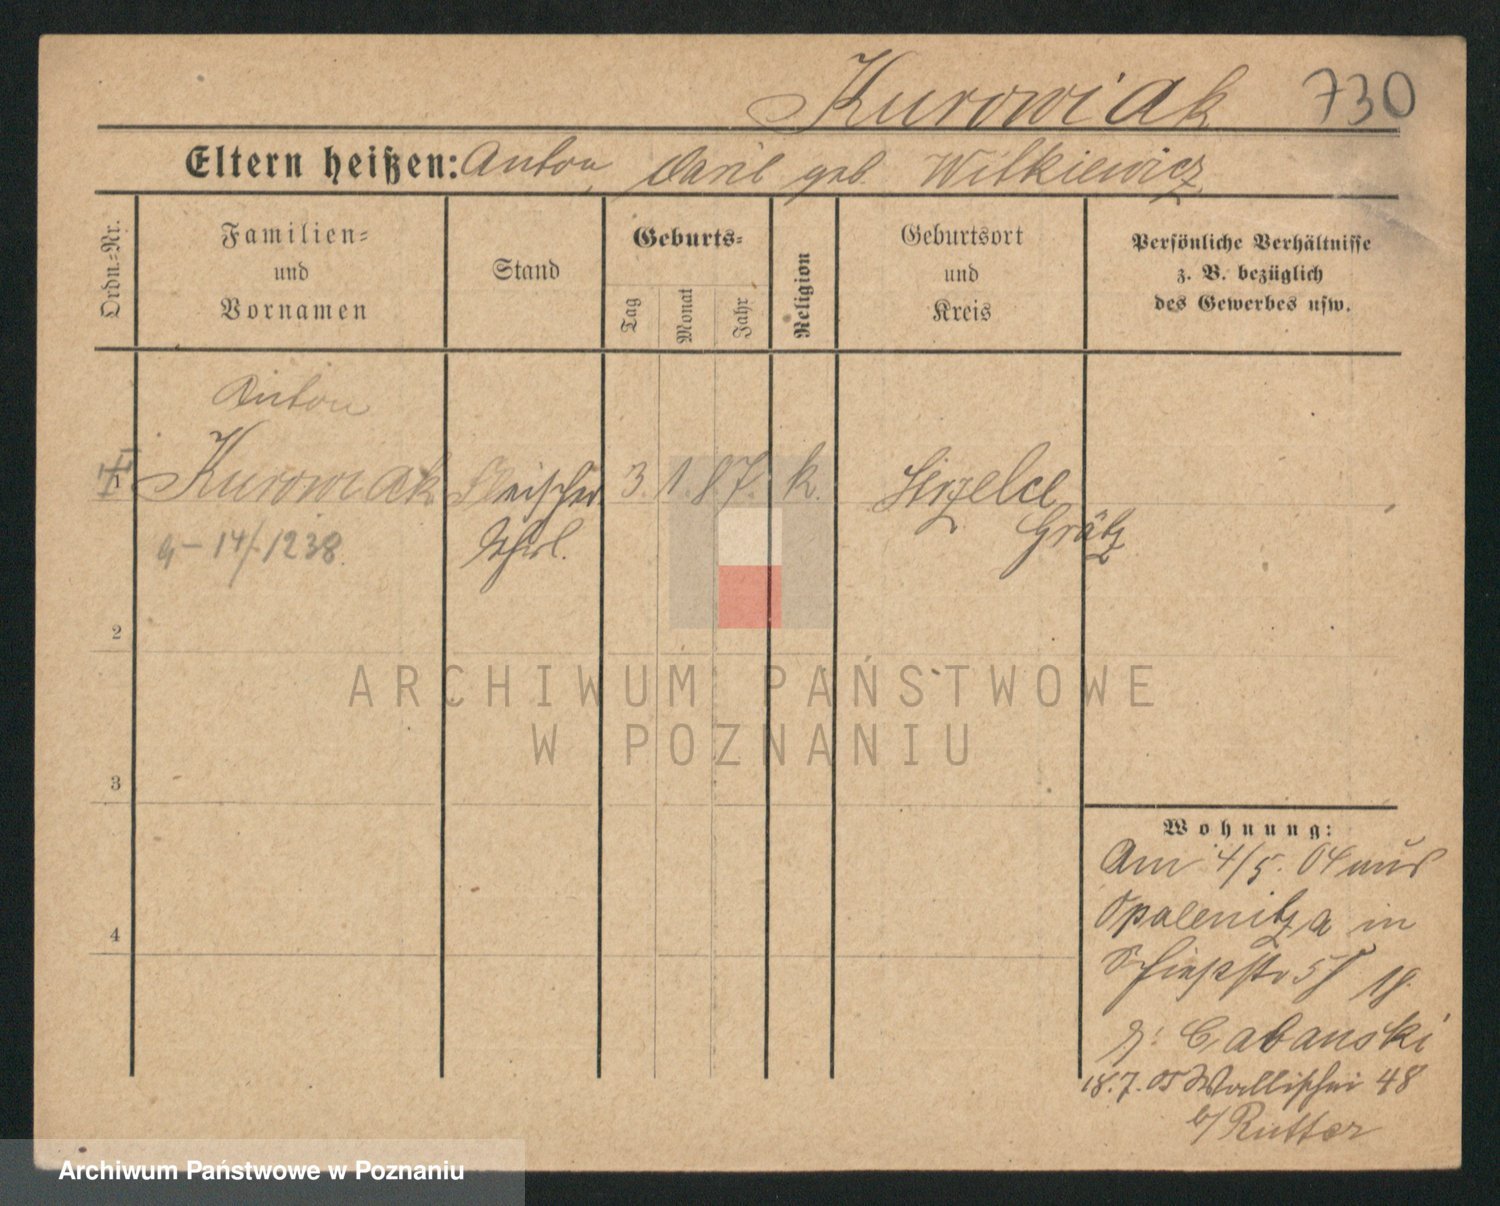 Kurowiak 730
Eltern heißen: Anton, geb. Witkiewicz
Ordn.-Nr.
Familien-
und
Vornamen
Stand
Geburts-
Tag
Monat
Jahr
Religion
Geburtsort
und
Kreis
Persönliche Verhältnisse
z. B. bezüglich
des Gewerbes usw.
Anton
1 Kurowiak Fleischer 3. 1. 87. k. Strzelce
Grätz
14/1238
2
3
4
Wohnung:
Am 4/5. 04 aus
Opalenitza in
Schießstr 5
Cabanski
18.7.05 Wallischei 48
b/ Rutter
ARCHIWUM PAŃSTWOWE
W POZNANIU
Archiwum Państwowe w Poznaniu